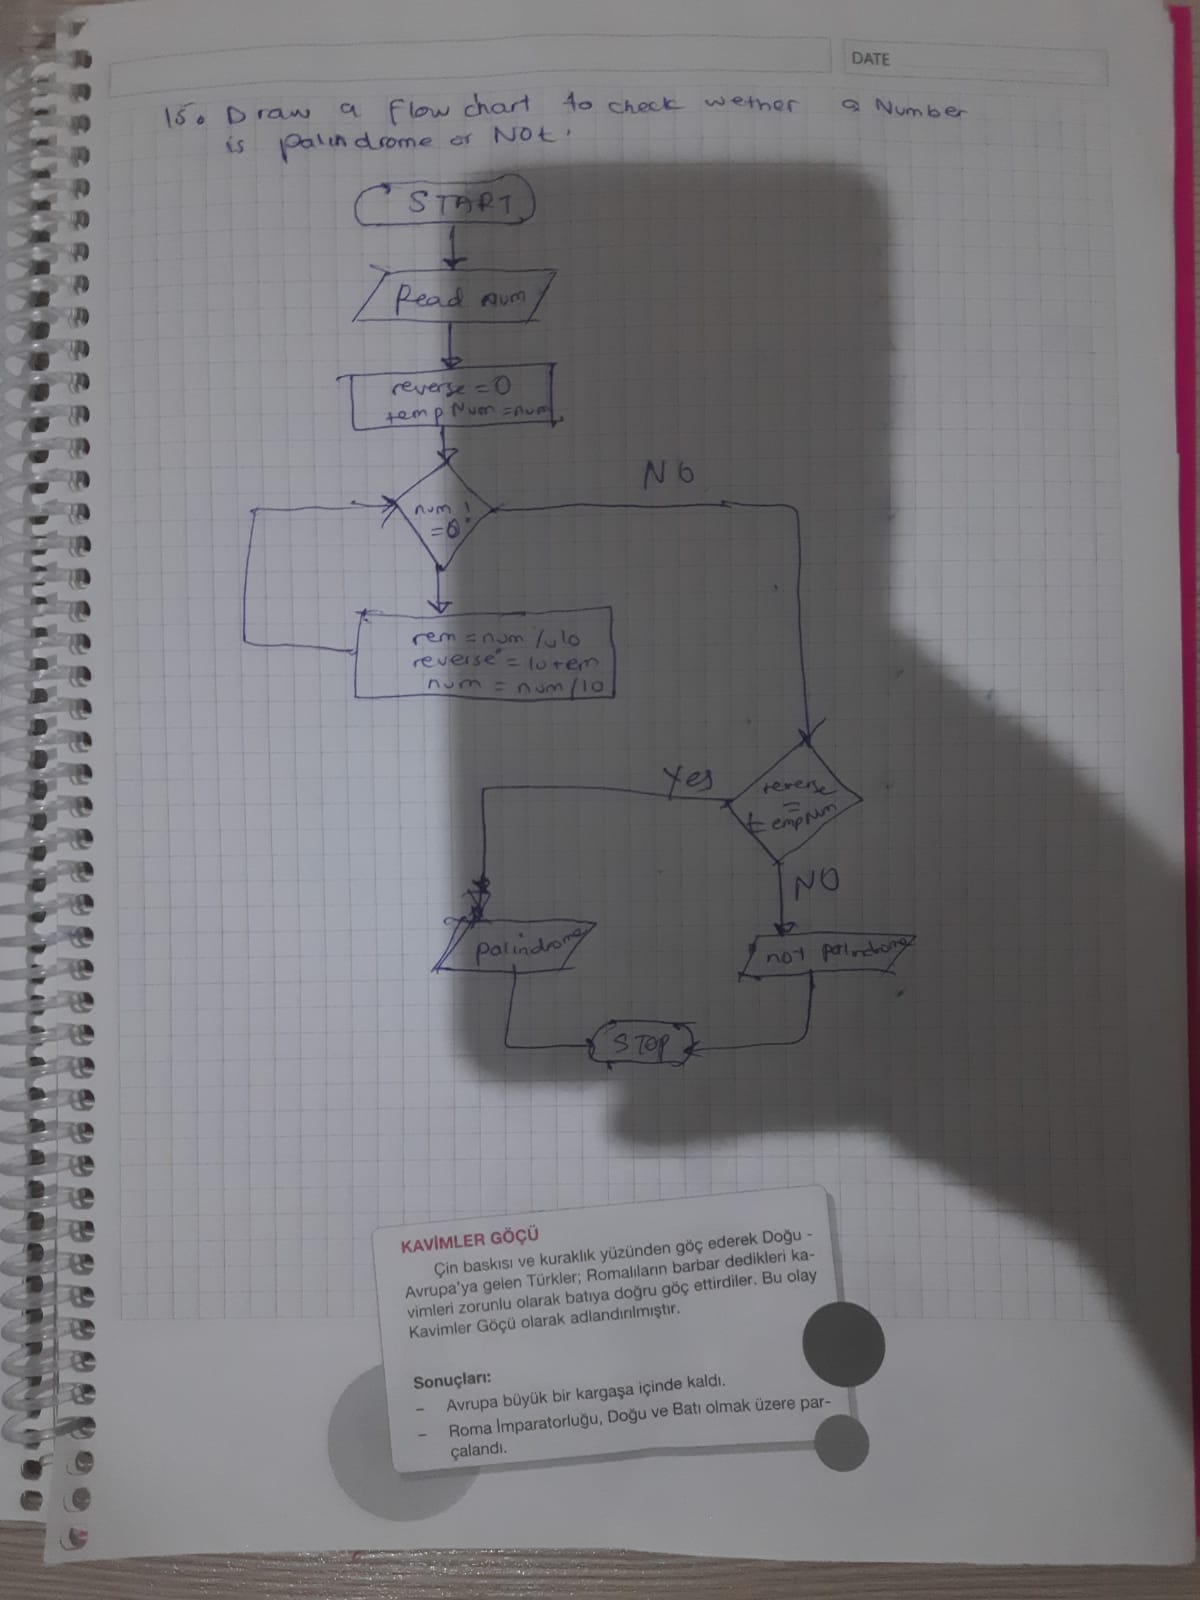 DATE
15. Draw a flow chart to check wether a Number
is palindrome or Not.
START
Read num
reverse = 0
temp Num = num
NO
num !
= 0
rem = num % 10
reverse = 10 rem
num = num / 10
Yes
reverse
=
tempNum
NO
palindrome
not palindrome
STOP
KAVİMLER GÖÇÜ
Çin baskısı ve kuraklık yüzünden göç ederek Doğu -
Avrupa'ya gelen Türkler; Romalıların barbar dedikleri ka-
vimleri zorunlu olarak batıya doğru göç ettirdiler. Bu olay
Kavimler Göçü olarak adlandırılmıştır.
Sonuçları:
– Avrupa büyük bir kargaşa içinde kaldı.
– Roma İmparatorluğu, Doğu ve Batı olmak üzere par-
çalandı.